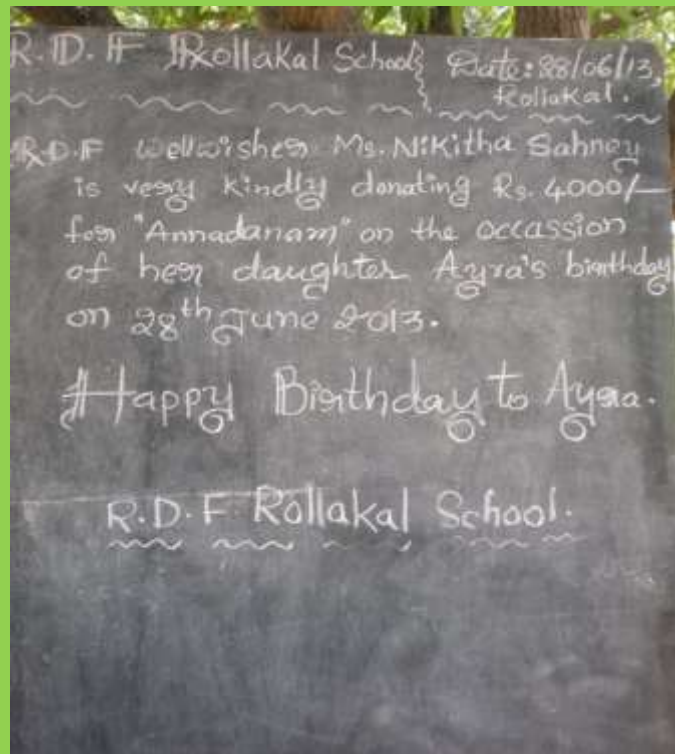 R.D.F Rollakal School Date: 28/06/13,
Rollakal.
R.D.F wellwisher Ms. Nikitha Sahney
is very kindly donating Rs. 4000/-
for "Annadanam" on the occassion
of her daughter Ayra's birthday
on 28th June 2013.
Happy Birthday to Ayra.
R.D.F Rollakal School.